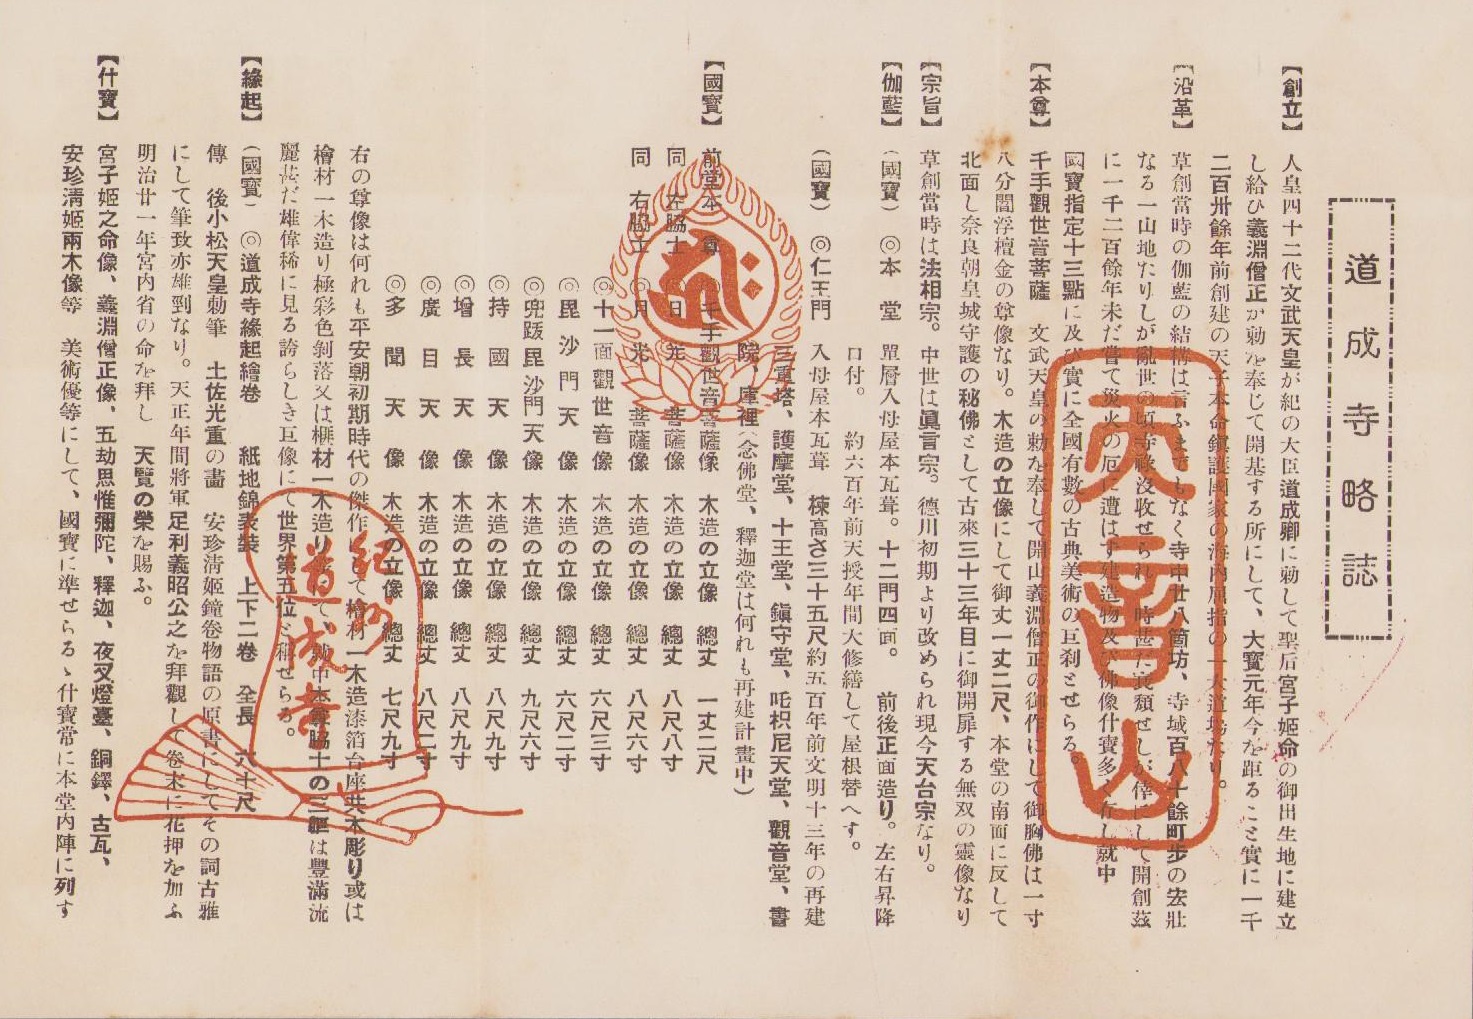 道成寺略誌
【創立】 人皇四十二代文武天皇が紀の大臣道成卿に勅して聖后宮子姬命の御出生地に建立
し給ひ義淵僧正が勅を奉じて開基する所にして、大寶元年今を距ること實に一千
二百卅餘年前創建の天子本命鎮護國家の海內屈指の一大道場たり。
【沿革】 草創當時の伽藍の結構は言ふまでもなく寺中廿八箇坊、寺域百八十餘町步の宏壯
なる一山地たりしが亂世の頃寺祿沒收せられ、時甚だ衰頽せしが倖にして開創茲
に一千二百餘年未だ嘗て災火の厄に遭はず建造物及び佛像什寶多く存し就中
國寶指定十三點に及び實に全國有數の古典美術の巨刹とせらる。
【本尊】 千手觀世音菩薩 文武天皇の勅を奉して開山義淵僧正の御作にして御胸佛は一寸
八分閻浮檀金の尊像なり。木造の立像にして御丈一丈二尺、本堂の南面に反して
北面し奈良朝皇城守護の秘佛として古來三十三年目に御開扉する無双の靈像なり
【宗旨】 草創當時は法相宗。中世は眞言宗。德川初期より改められ現今天台宗なり。
【伽藍】 (國寶) ◎本堂 單層入母屋本瓦葺。十二門四面。 前後正面造り。左右昇降
口付。 約六百年前天授年間大修繕して屋根替へす。
(國寶) ◎仁王門 入母屋本瓦葺 棟高さ三十五尺約五百年前文明十三年の再建
三重塔、護摩堂、十王堂、鎭守堂、吒枳尼天堂、觀音堂、書
院、庫裡(念佛堂、釋迦堂は何れも再建計畫中)
【國寶】 前堂本尊 ◎千手觀世音菩薩像 木造の立像 總丈 一丈二尺
同 左脇士 ◎日光菩薩像 木造の立像 總丈 八尺八寸
同 右脇士 ◎月光菩薩像 木造の立像 總丈 八尺六寸
◎十一面觀世音像 木造の立像 總丈 六尺三寸
◎毘沙門天像 木造の立像 總丈 六尺二寸
◎兜跋毘沙門天像 木造の立像 總丈 九尺六寸
◎持國天像 木造の立像 總丈 八尺九寸
◎增長天像 木造の立像 總丈 八尺九寸
◎廣目天像 木造の立像 總丈 八尺二寸
◎多聞天像 木造の立像 總丈 七尺九寸
右の尊像は何れも平安朝初期時代の傑作にして檜材一木造漆箔台座共木彫り或は
檜材一木造り極彩色剝落又は榧材一木造りにて、就中本尊脇士の三軀は豐滿流
麗甚だ雄偉稀に見る誇らしき巨像にて世界第五位と稱せらる。
【緣起】 (國寶) ◎道成寺緣起繪卷 紙地錦表裝 上下二卷 全長 六十尺
傳 後小松天皇勅筆 土佐光重の畵 安珍淸姬鐘卷物語の原書にしてその詞古雅
にして筆致亦雄到なり。天正年間將軍足利義昭公之を拜觀して卷末に花押を加ふ
明治廿一年宮內省の命を拜し 天覽の榮を賜ふ。
【什寶】 宮子姬之命像、義淵僧正像、五劫思惟彌陀、釋迦、夜叉燈臺、銅鐸、古瓦、
安珍淸姬兩木像等 美術優等にして、國寶に準せらるゝ什寶常に本堂內陣に列す
天音山
紀州
道成寺